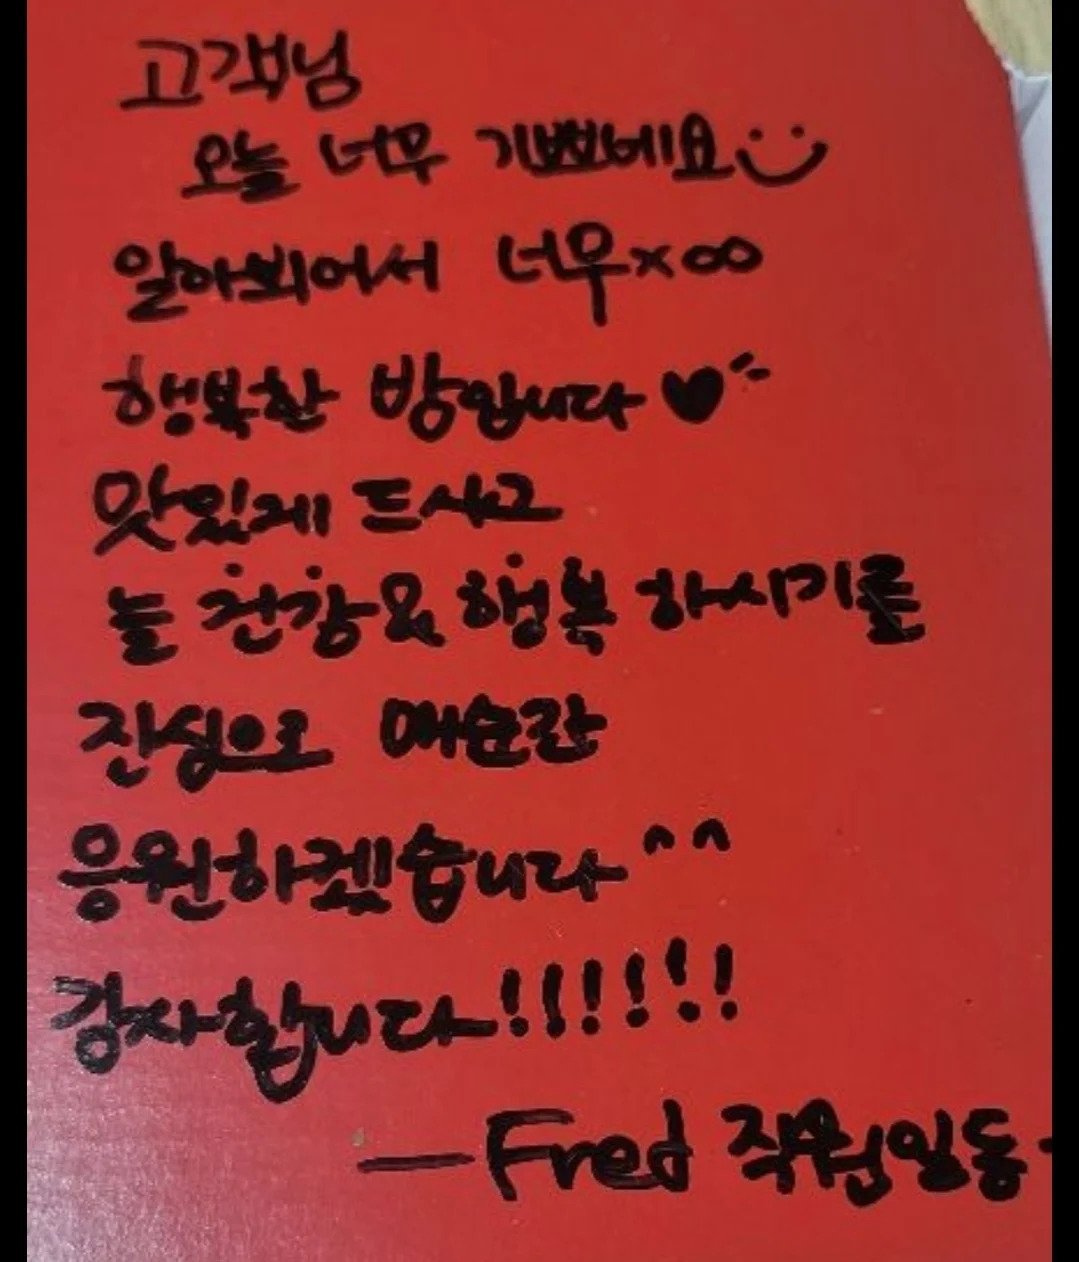 고객님
오늘 너무 기쁘네요
알아뵈어서 너무×∞
행복한 밤입니다♥
맛있게 드시고
늘 건강&행복 하시기를
진심으로 매순간
응원하겠습니다^^
감사합니다!!!!!!!
—Fred 직원일동-